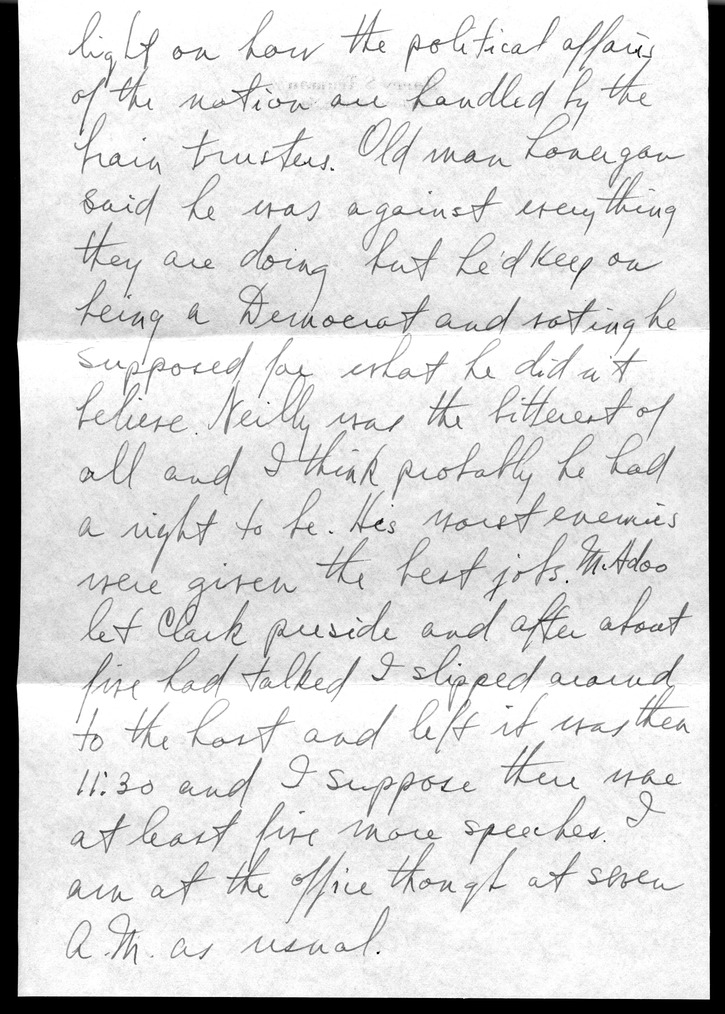 light on how the political affairs
of the nation are handled by the
brain trusters. Old man Lonergan
said he was against everything
they are doing but he'd keep on
being a Democrat and voting he
supposed for what he didn't
believe. Neilly was the bitterest of
all and I think probably he had
a right to be. His worst enemies
were given the best jobs. McAdoo
let Clark preside and after about
five had talked I slipped around
to the host and left it was then
11:30 and I suppose there were
at least five more speeches. I
am at the office though at seven
A.M. as usual.